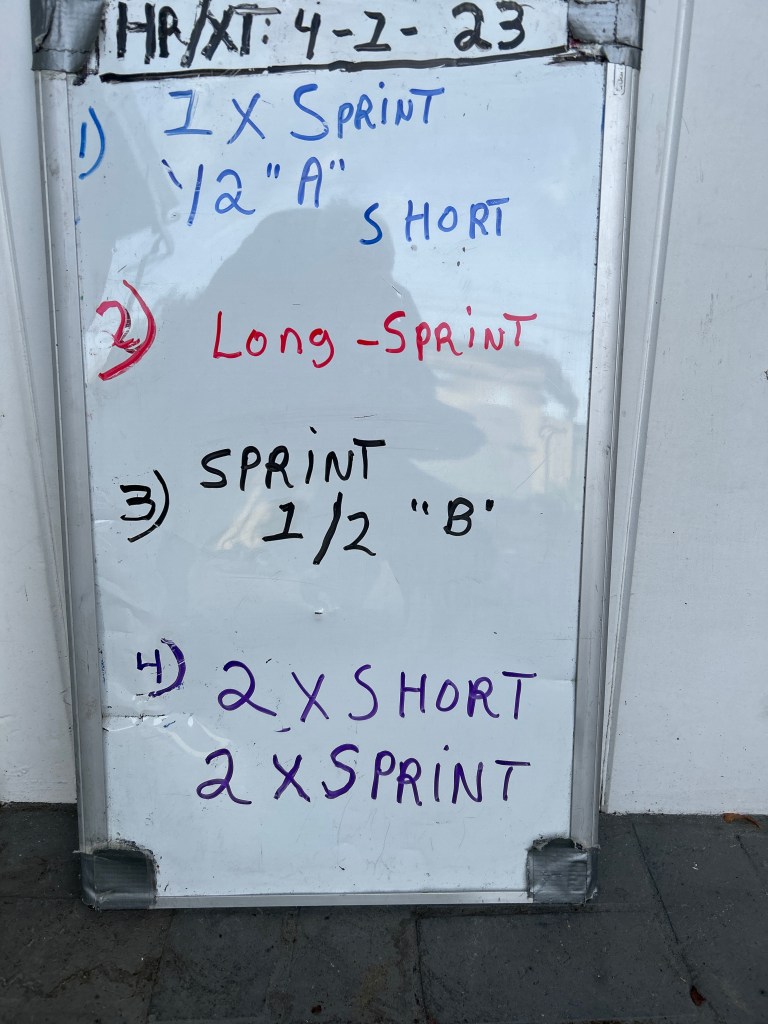 HR/XT: 4-1-23
1) 1 X SPRINT
1/2 "A"
SHORT
2) Long-SPRINT
3) SPRINT
1/2 "B"
4) 2 X SHORT
2 X SPRINT